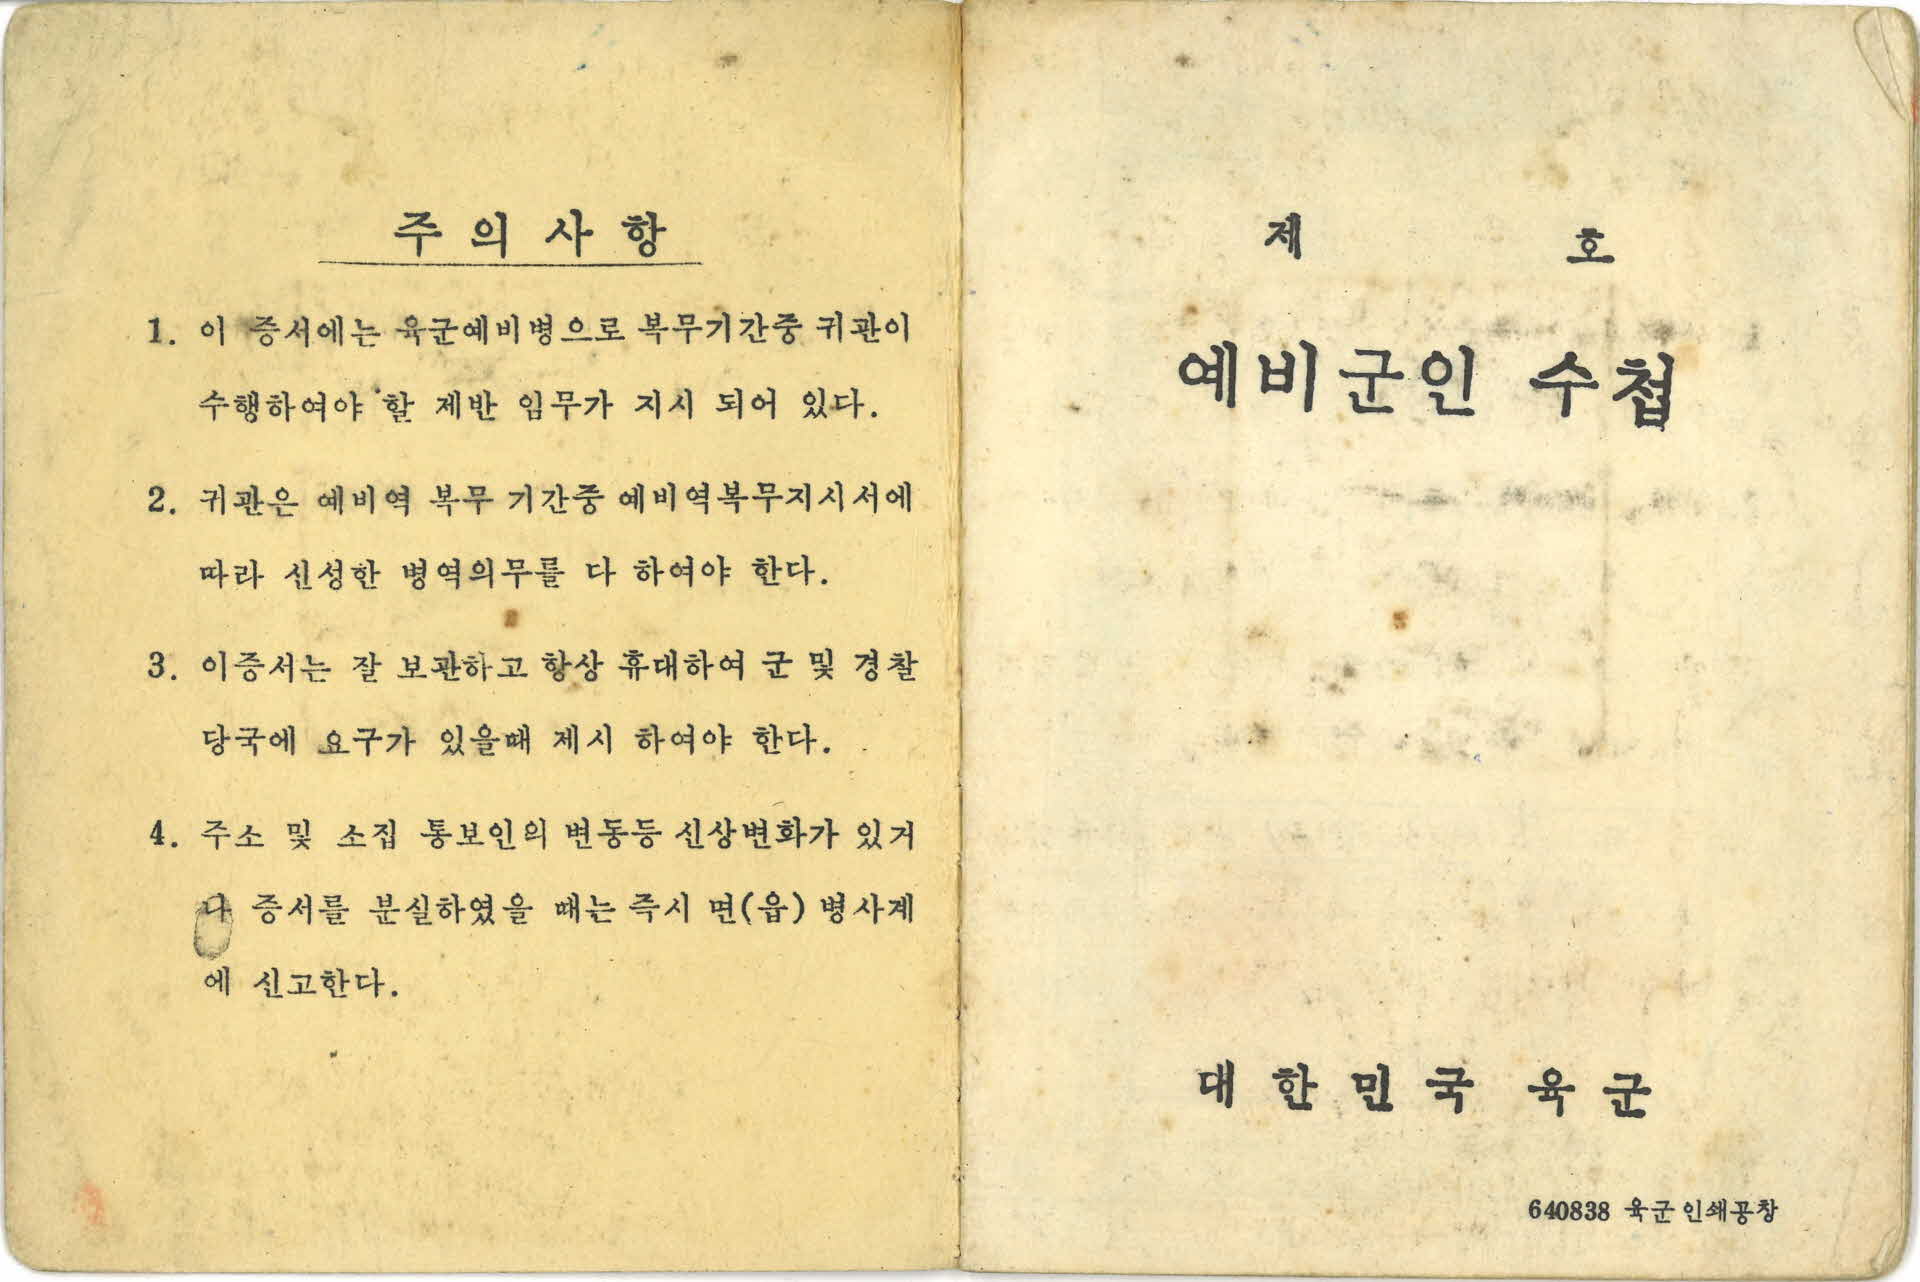 주의사항
1. 이 증서에는 육군예비병으로 복무기간중 귀관이
수행하여야 할 제반 임무가 지시 되어 있다.
2. 귀관은 예비역 복무 기간중 예비역복무지시서에
따라 신성한 병역의무를 다 하여야 한다.
3. 이증서는 잘 보관하고 항상 휴대하여 군 및 경찰
당국에 요구가 있을때 제시 하여야 한다.
4. 주소 및 소집 통보인의 변동등 신상변화가 있거
나 증서를 분실하였을 때는 즉시 면(읍) 병사계
에 신고한다.
제 호
예비군인 수첩
대한민국 육군
640838 육군인쇄공창